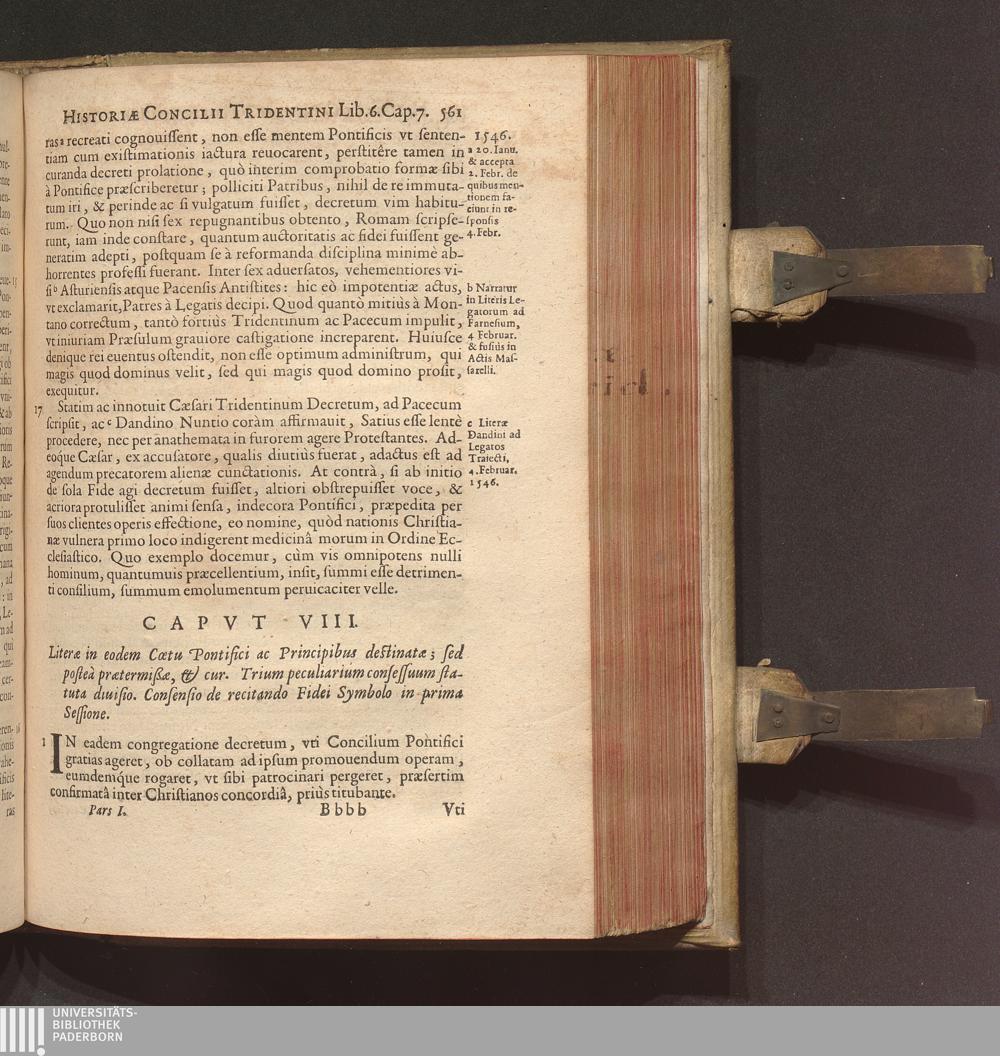 HISTORIÆ CONCILII TRIDENTINI Lib.6.Cap.7. 561
ras a recreati cognouiſſent, non eſſe mentem Pontificis vt ſenten-
tiam cum exiſtimationis iactura reuocarent, perſtitêre tamen in
curanda decreti prolatione, quò interim comprobatio formæ ſibi
à Pontifice præſcriberetur; polliciti Patribus, nihil de re immuta-
tum iri, & perinde ac ſi vulgatum fuiſſet, decretum vim habitu-
rum. Quo non niſi ſex repugnantibus obtento, Romam ſcripſe-
runt, iam inde conſtare, quantum auctoritatis ac fidei fuiſſent ge-
neratim adepti, poſtquam ſe à reformanda diſciplina minimè ab-
horrentes profeſſi fuerant. Inter ſex aduerſatos, vehementiores vi-
ſi b Aſturienſis atque Pacenſis Antiſtites: hic eò impotentiæ actus,
vt exclamarit, Patres à Legatis decipi. Quod quantò mitiùs à Mon-
tano correctum, tantò fortiùs Tridentinum ac Pacecum impulit,
vt iniuriam Præſulum grauiore caſtigatione increparent. Huiuſce
denique rei euentus oſtendit, non eſſe optimum adminiſtrum, qui
magis quod dominus velit, ſed qui magis quod domino proſit,
exequitur.
1546.
a 20. Ianu.
& accepta
2. Febr. de
quibus men-
tionem fa-
ciunt in re-
ſponſis
4. Febr.
b Narratur
in Literis Le-
gatorum ad
Farneſium,
4 Februar.
& fuſiùs in
Actis Maſ-
ſarelli.
17 Statim ac innotuit Cæſari Tridentinum Decretum, ad Pacecum
ſcripſit, ac c Dandino Nuntio coràm affirmauit, Satius eſſe lentè
procedere, nec per anathemata in furorem agere Proteſtantes. Ad-
eoque Cæſar, ex accuſatore, qualis diutiùs fuerat, adactus eſt ad
agendum precatorem alienæ cunctationis. At contrà, ſi ab initio
de ſola Fide agi decretum fuiſſet, altiori obſtrepuiſſet voce, &
acriora protuliſſet animi ſenſa, indecora Pontifici, præpedita per
ſuos clientes operis effectione, eo nomine, quòd nationis Chriſtia-
næ vulnera primo loco indigerent medicinâ morum in Ordine Ec-
cleſiaſtico. Quo exemplo docemur, cùm vis omnipotens nulli
hominum, quantumuis præcellentium, inſit, ſummi eſſe detrimen-
ti conſilium, ſummum emolumentum peruicaciter velle.
c Literæ
Dandini ad
Legatos
Traiecti,
4. Februar.
1546.
CAPVT VIII.
Literæ in eodem Cœtu Pontifici ac Principibus deſtinatæ; ſed
poſteà prætermiſſæ, & cur. Trium peculiarium conſeſſuum ſta-
tuta diuiſio. Conſenſio de recitando Fidei Symbolo in prima
Seſſione.
1 IN eadem congregatione decretum, vti Concilium Pontifici
gratias ageret, ob collatam ad ipſum promouendum operam,
eumdemque rogaret, vt ſibi patrocinari pergeret, præſertim
confirmatâ inter Chriſtianos concordiâ, priùs titubante.
Pars I. Bbbb Vti
UNIVERSITÄTS-
BIBLIOTHEK
PADERBORN